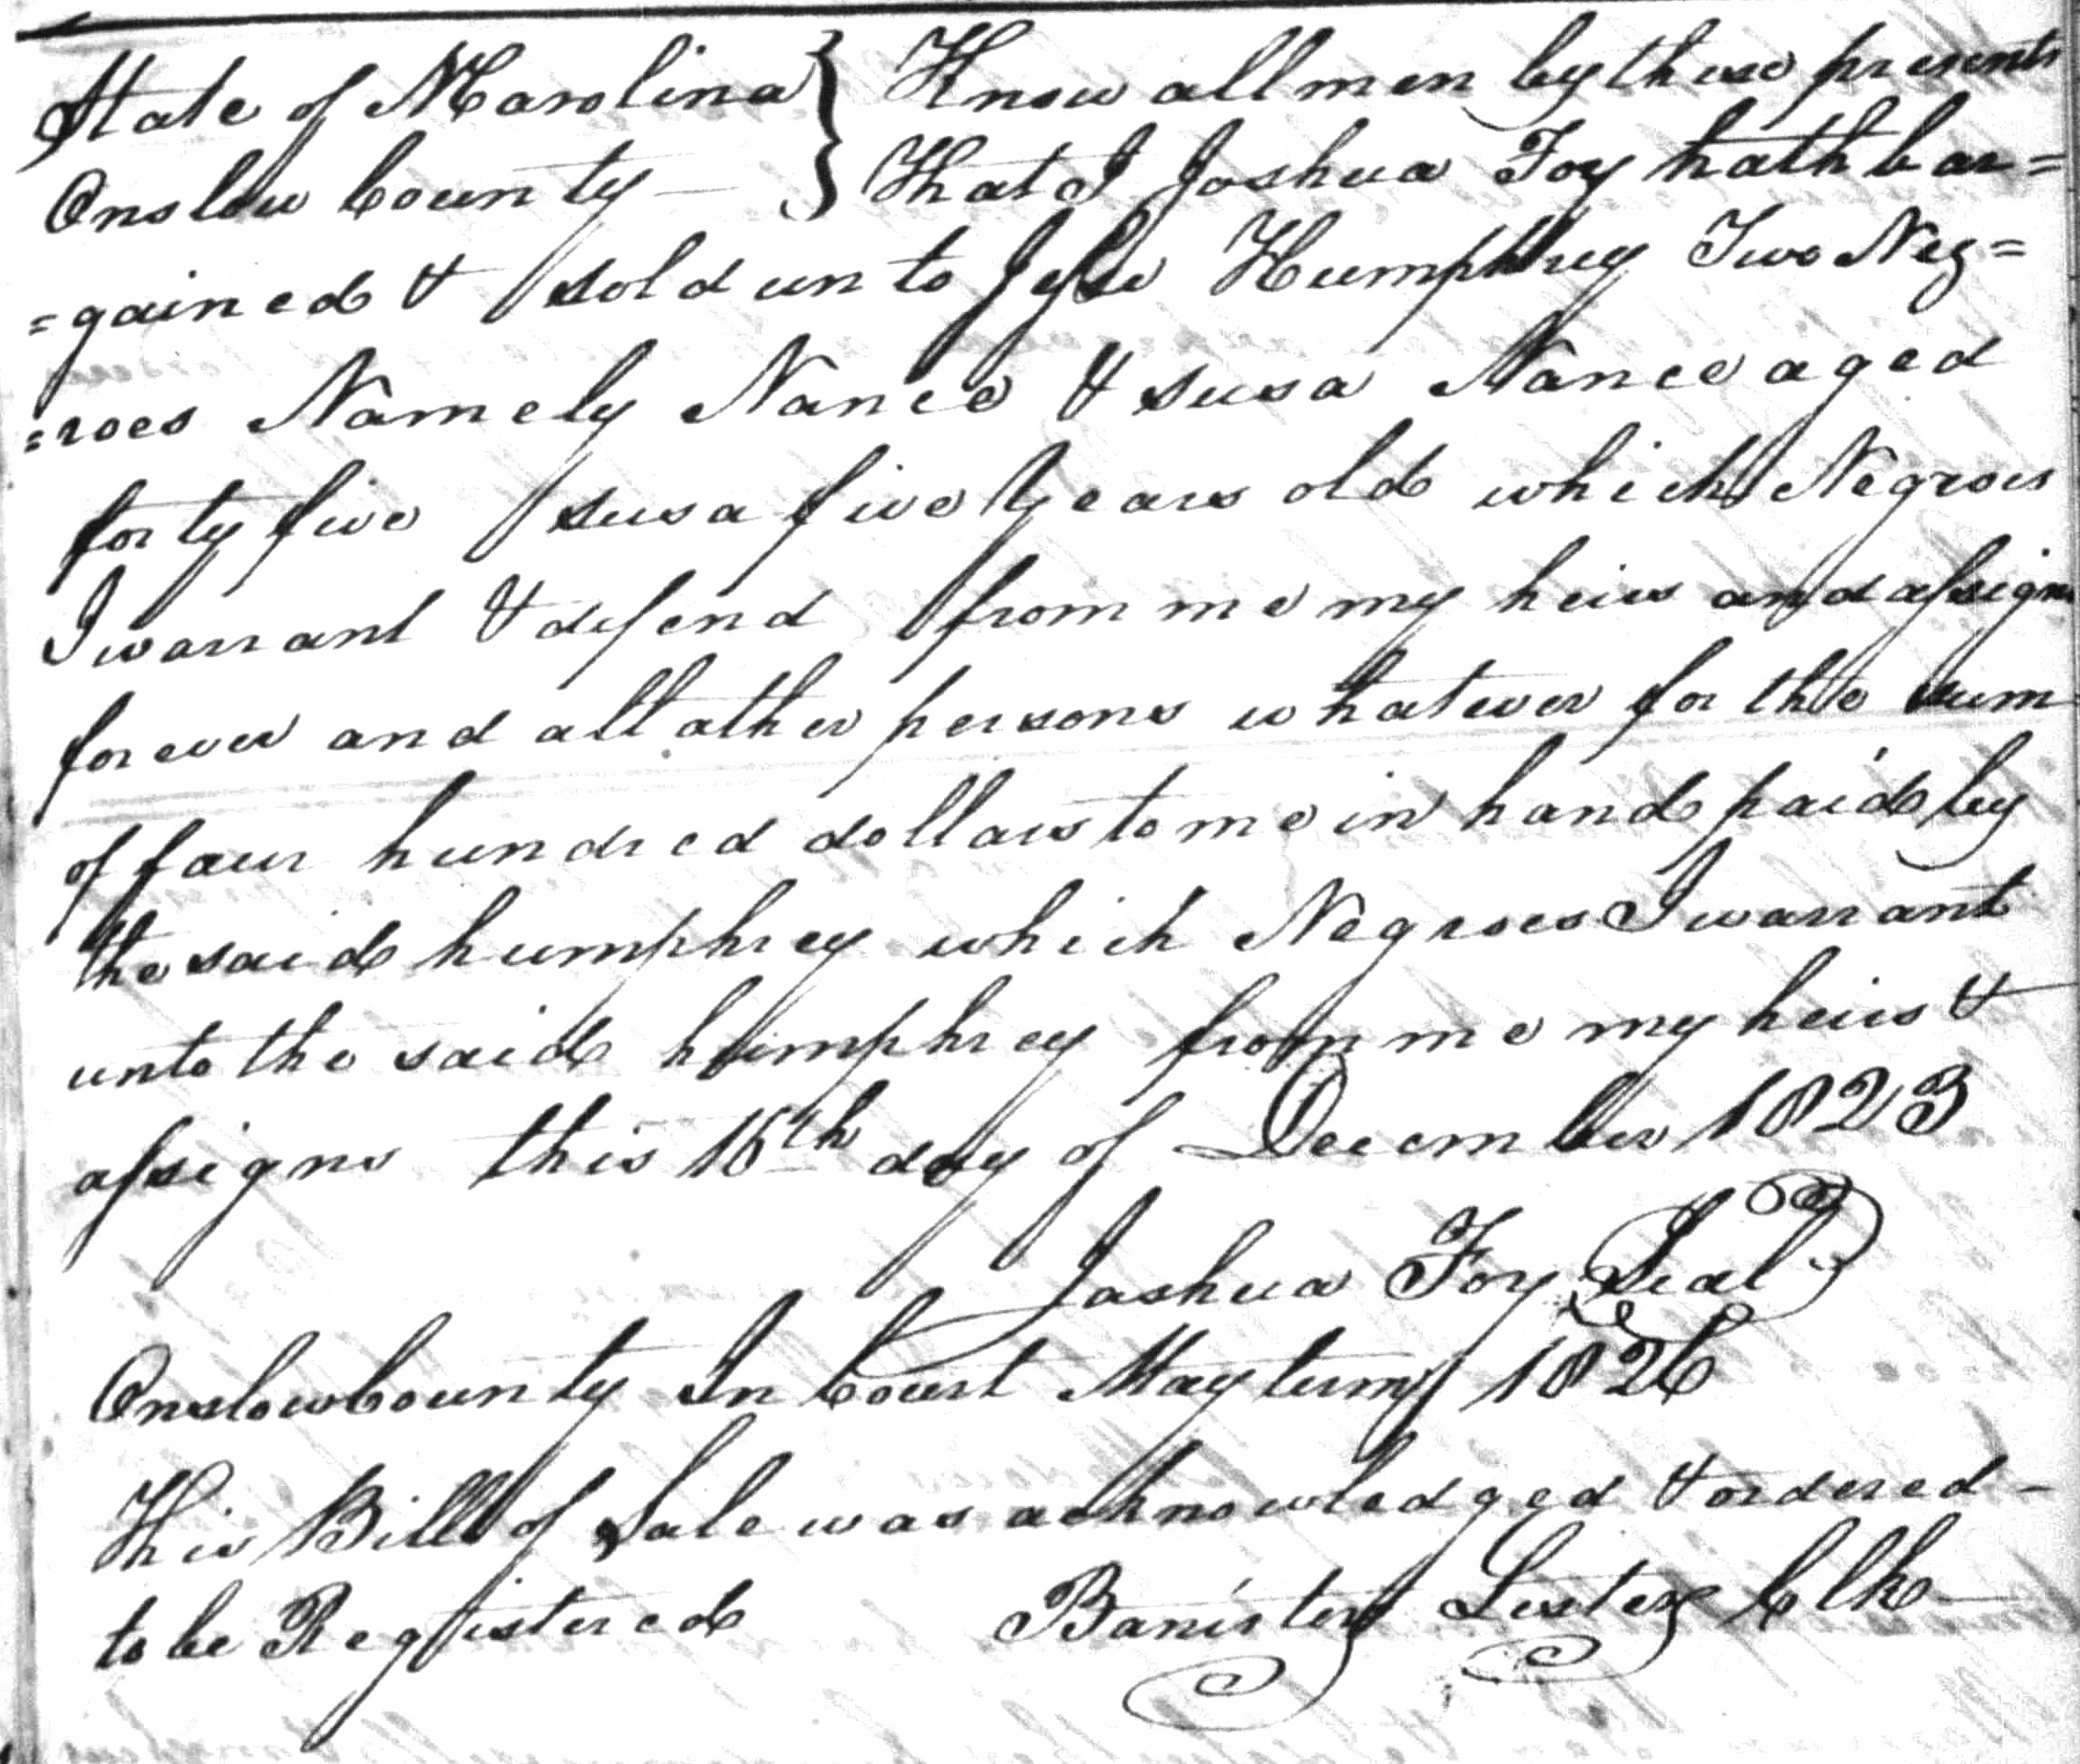 State of NCarolina } Know all men by these presents
Onslow County — } That I Joshua Foy hath bar=
=gained & sold unto Jesse Humphrey Two Neg=
=roes Namely Nance & susa Nance aged
forty five susa five Years old which Negroes
I warrant & defend from me my heirs and assigns
forever and all other persons whatever for the sum
of four hundred dollars to me in hand paid by
the said humphrey which Negroes I warrant
unto the said humphrey from me my heirs &
assigns this 15th day of December 1823
Joshua Foy Seal
Onslow County In Court May term 1826
This Bill of Sale was acknowledged & ordered –
to be Registered Banister Lester Clk –